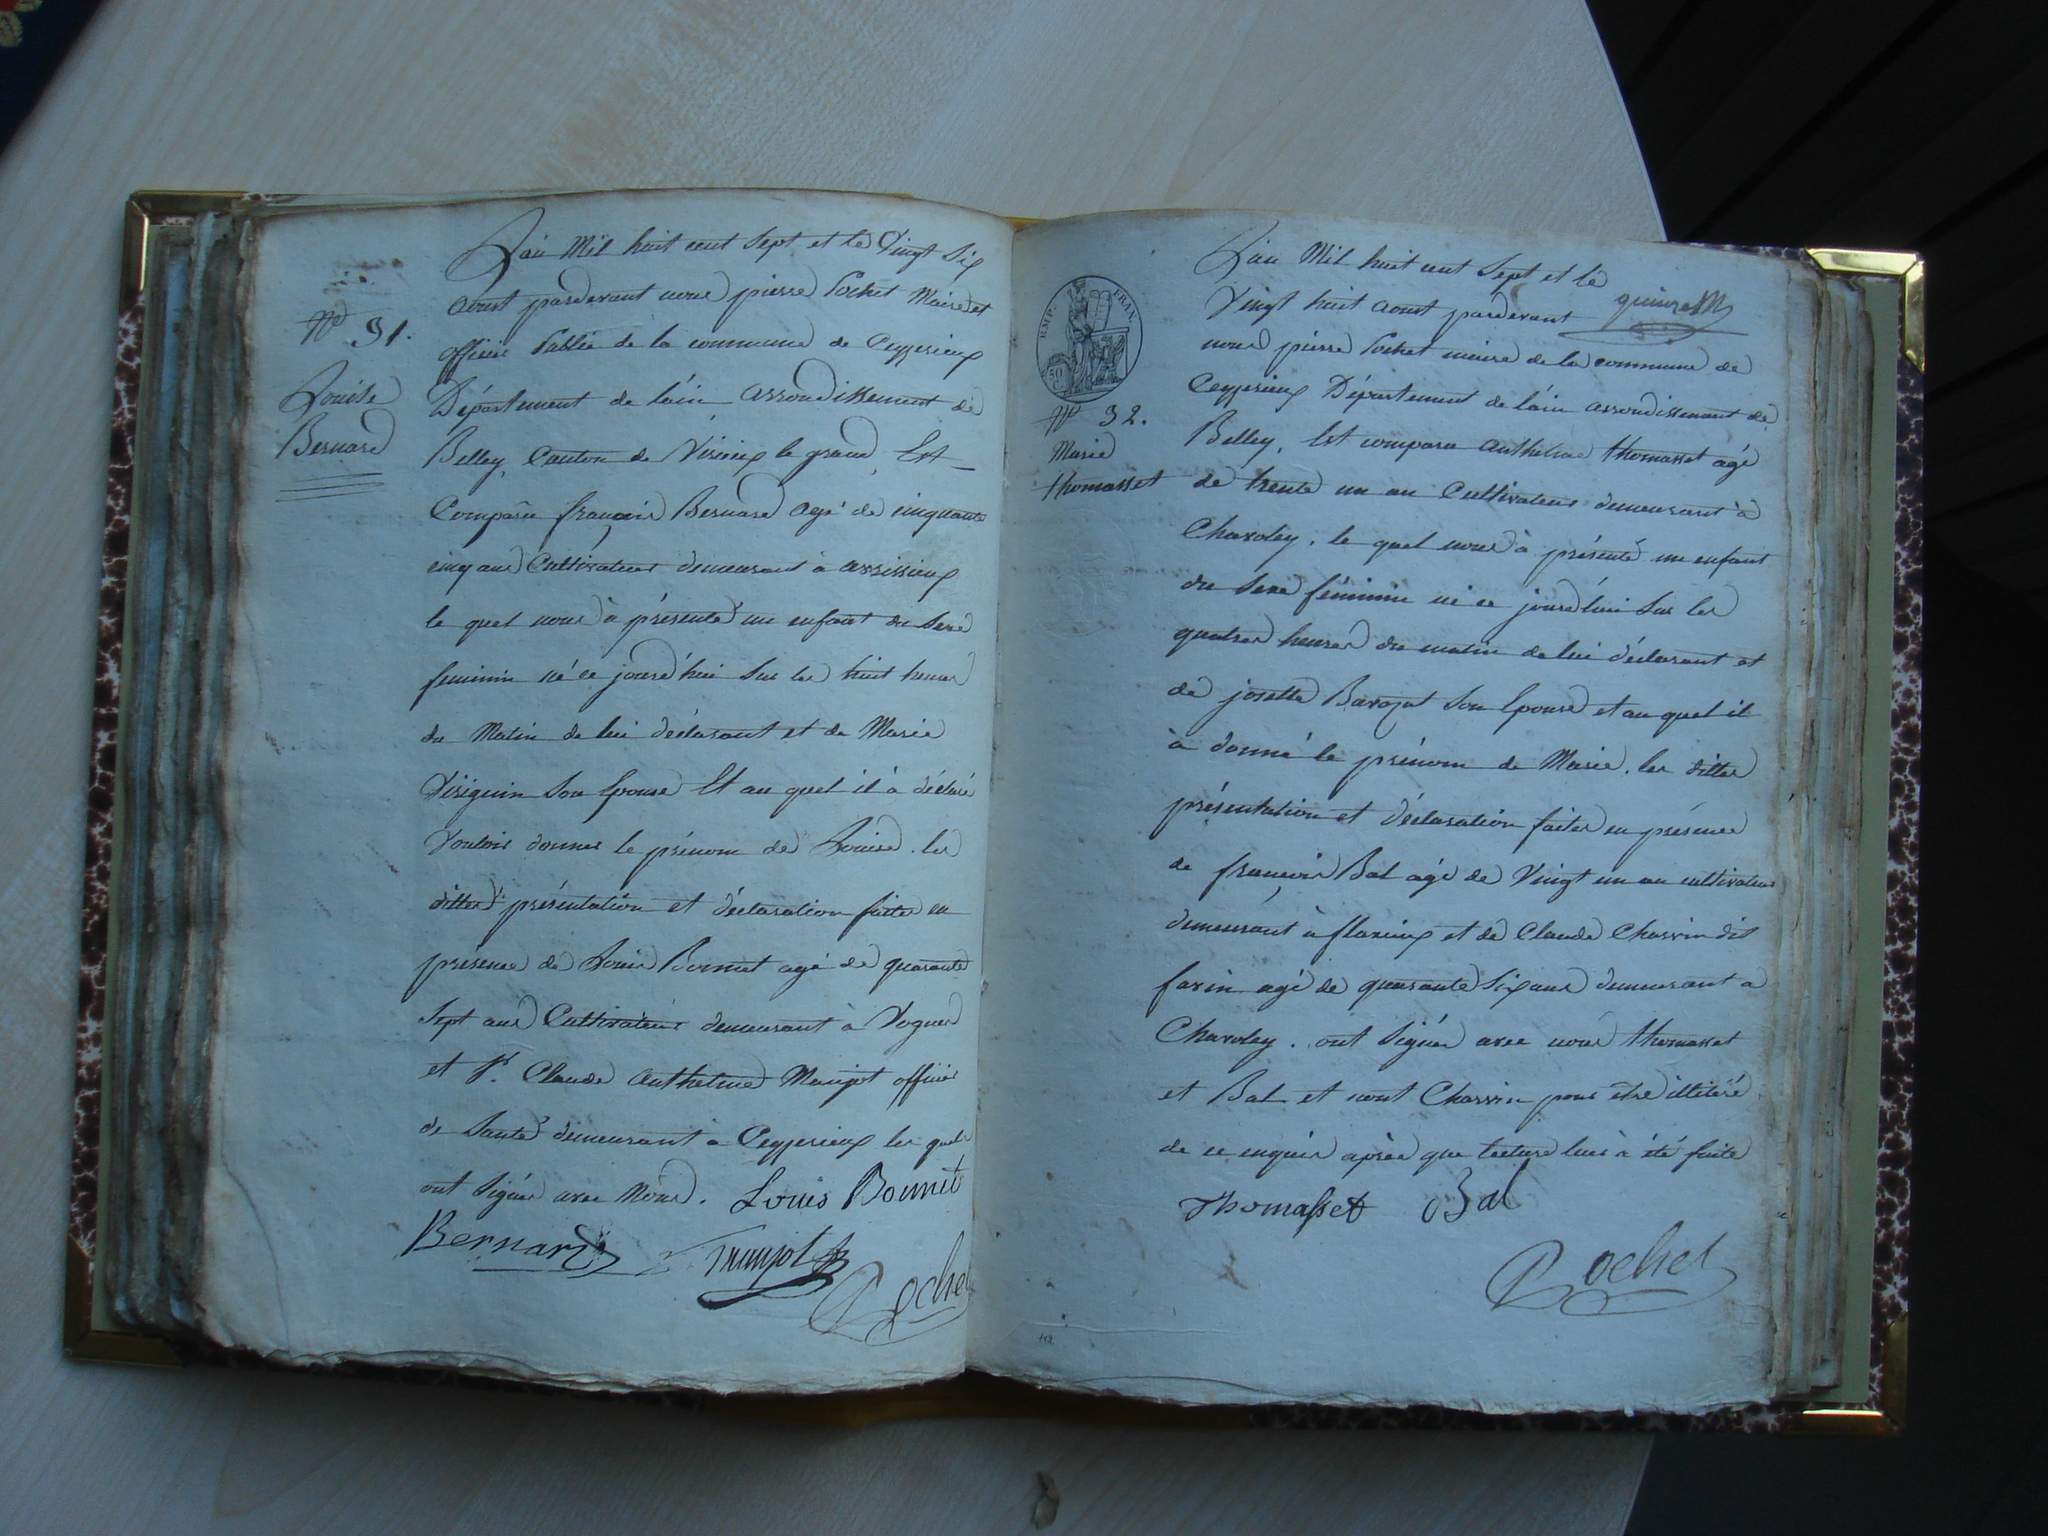 L'an Mil huit cent Sept et le Vingt Six
aoust pardevant nous pierre Pochet Maire et
officier Public de la commune de Ceyzerieux
N° 31.
Louise
Bernard
Département de l'ain arrondissement de
Belley, Canton de Virieux le grand, Est
Comparu françois Bernard agé de cinquante
cinq ans Cultivateur demeurant à avrissieux
le quel nous à présenté un enfant du sexe
feminin né ce jourd'hui sur les huit heures
du Matin de lui déclarant et de Marie
Viriguin Son Epouse Et au quel il à déclaré
Vouloir donner le prénom de Louise. les
dittes présentation et déclaration faites en
présence de Louis Bonnet agé de quarante
Sept ans Cultivateur demeurant à Vognes
et Sr. Claude Anthelme officier
de Santé demeurant à Ceyzerieux les quels
ont Signés avec Nous. Louis Bonnet
Bernard
Pochet
L'an Mil huit cent Sept et le
Vingt huit aoust pardevant
nous pierre Pochet maire de la commune de
Ceyzerieux Département de l'ain arrondissement de
EMP. FRAN.
50 C.
N° 32.
Marie
thomasset
Belley, Est comparu Anthelme thomasset agé
de trente un an Cultivateur demeurant à
Charoley, le quel nous à présenté un enfant
du sexe féminin né ce jourd'hui sur les
quatres heures du matin de lui déclarant et
de josette Son Epouse et au quel il
à donné le prénom de Marie. les dittes
présentation et déclaration faites en présence
de françois Bal agé de Vingt un an cultivateur
demeurant à flaxieux et de Claude Charvin dit
farin agé de quarante Six ans demeurant a
Charoley. ont Signés avec nous thomasset
et Bal et nont Charvin pour être illitéré
de ce enquis après que lecture lui à été faite
Thomasset Bal
Pochet